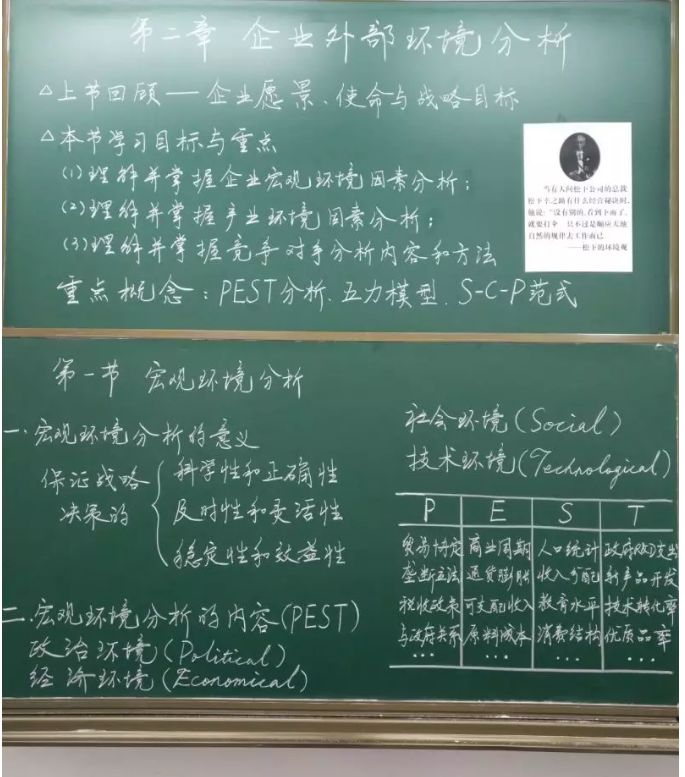 第二章 企业外部环境分析
△上节回顾——企业愿景、使命与战略目标
△本节学习目标与重点
(1)理解并掌握企业宏观环境因素分析；
(2)理解并掌握产业环境因素分析；
(3)理解并掌握竞争对手分析内容和方法
重点概念：PEST分析、五力模型、S-C-P范式
当有人问松下公司的总裁
松下幸之助有什么经营秘诀时，
他说："没有别的，看到下雨了，
就要打伞。只不过是顺应天地
自然的规律去工作而已
——松下的环境观
第一节 宏观环境分析
一、宏观环境分析的意义
保证战略
决策的
科学性和正确性
及时性和灵活性
稳定性和效益性
二、宏观环境分析的内容(PEST)
政治环境(Political)
经济环境(Economical)
社会环境(Social)
技术环境(Technological)
P E S T
贸易协定 商业周期 人口统计 政府R&D支出
垄断立法 通货膨胀 收入分配 新产品开发
税收政策 可支配收入 教育水平 技术转化率
与政府关系 原料成本 消费结构 优质品率
... ... ... ...